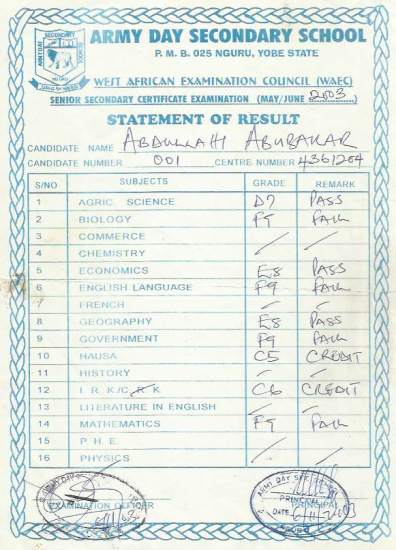 ARMY DAY SECONDARY SCHOOL
P. M. B. 025 NGURU, YOBE STATE
WEST AFRICAN EXAMINATION COUNCIL (WAEC)
SENIOR SECONDARY CERTIFICATE EXAMINATION (MAY/JUNE 2003
STATEMENT OF RESULT
CANDIDATE NAME ABDULLAHI ABUBAKAR
CANDIDATE NUMBER 001 CENTRE NUMBER 4361204
S/NO SUBJECTS GRADE REMARK
1 AGRIC SCIENCE D7 PASS
2 BIOLOGY F9 FAIL
3 COMMERCE / /
4 CHEMISTRY / /
5 ECONOMICS E8 PASS
6 ENGLISH LANGUAGE F9 FAIL
7 FRENCH / /
8 GEOGRAPHY E8 PASS
9 GOVERNMENT F9 FAIL
10 HAUSA C5 CREDIT
11 HISTORY / /
12 I. R. K./C. R. K C6 CREDIT
13 LITERATURE IN ENGLISH / /
14 MATHEMATICS F9 FAIL
15 P. H. E. / /
16 PHYSICS / /
EXAMINATION OFFICER PRINCIPAL
ARMY DAY SEC
PRINCIPAL
DATE
NGURU